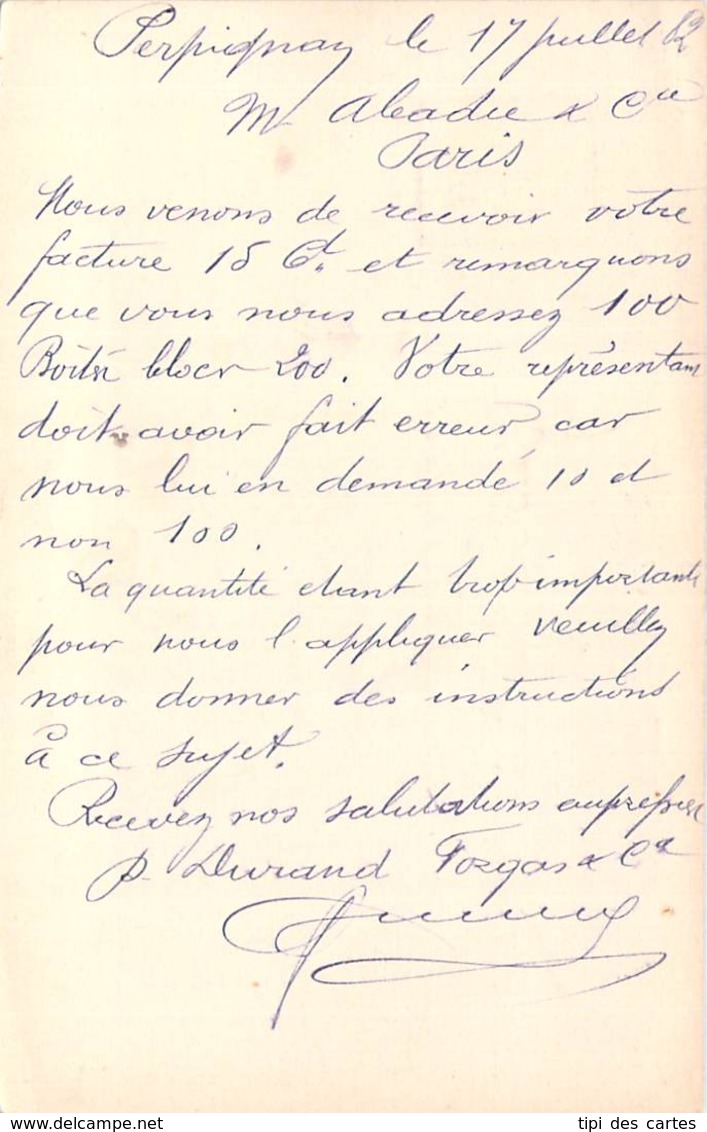 Perpignan le 17 juillet 82
Mr Abadie & Cie
Paris
Nous venons de recevoir votre
facture 15 Ct. et remarquons
que vous nous adressez 100
Boites blocs 200. Votre représentant
doit avoir fait erreur car
nous lui en demandé 10 et
non 100.
La quantité étant trop importante
pour nous l'appliquer veuillez
nous donner des instructions
à ce sujet.
Recevez nos salutations empressées
p. Durand Forgas & Cie
tipi des cartes